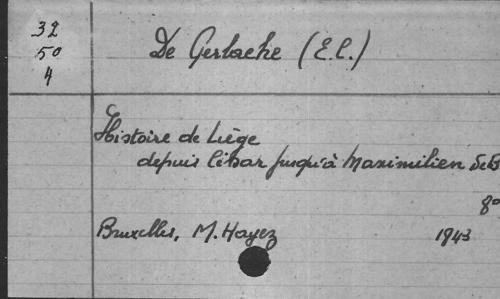 32
50
4
De Gerlache (E.C.)
Histoire de Liège
depuis César jusqu'à Maximilien de B
8°
Bruxelles, M. Hayez
1943